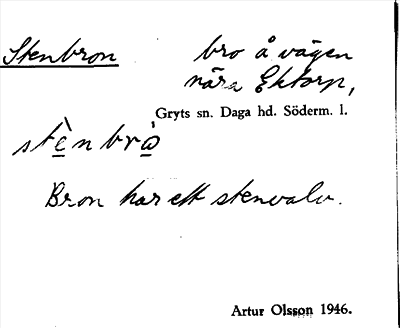 Stenbron bro å vägen
nära Ektorp,
Gryts sn. Daga hd. Söderm. l.
stè̲n brò̲
Bron har ett stenvalv.
Artur Olsson 1946.